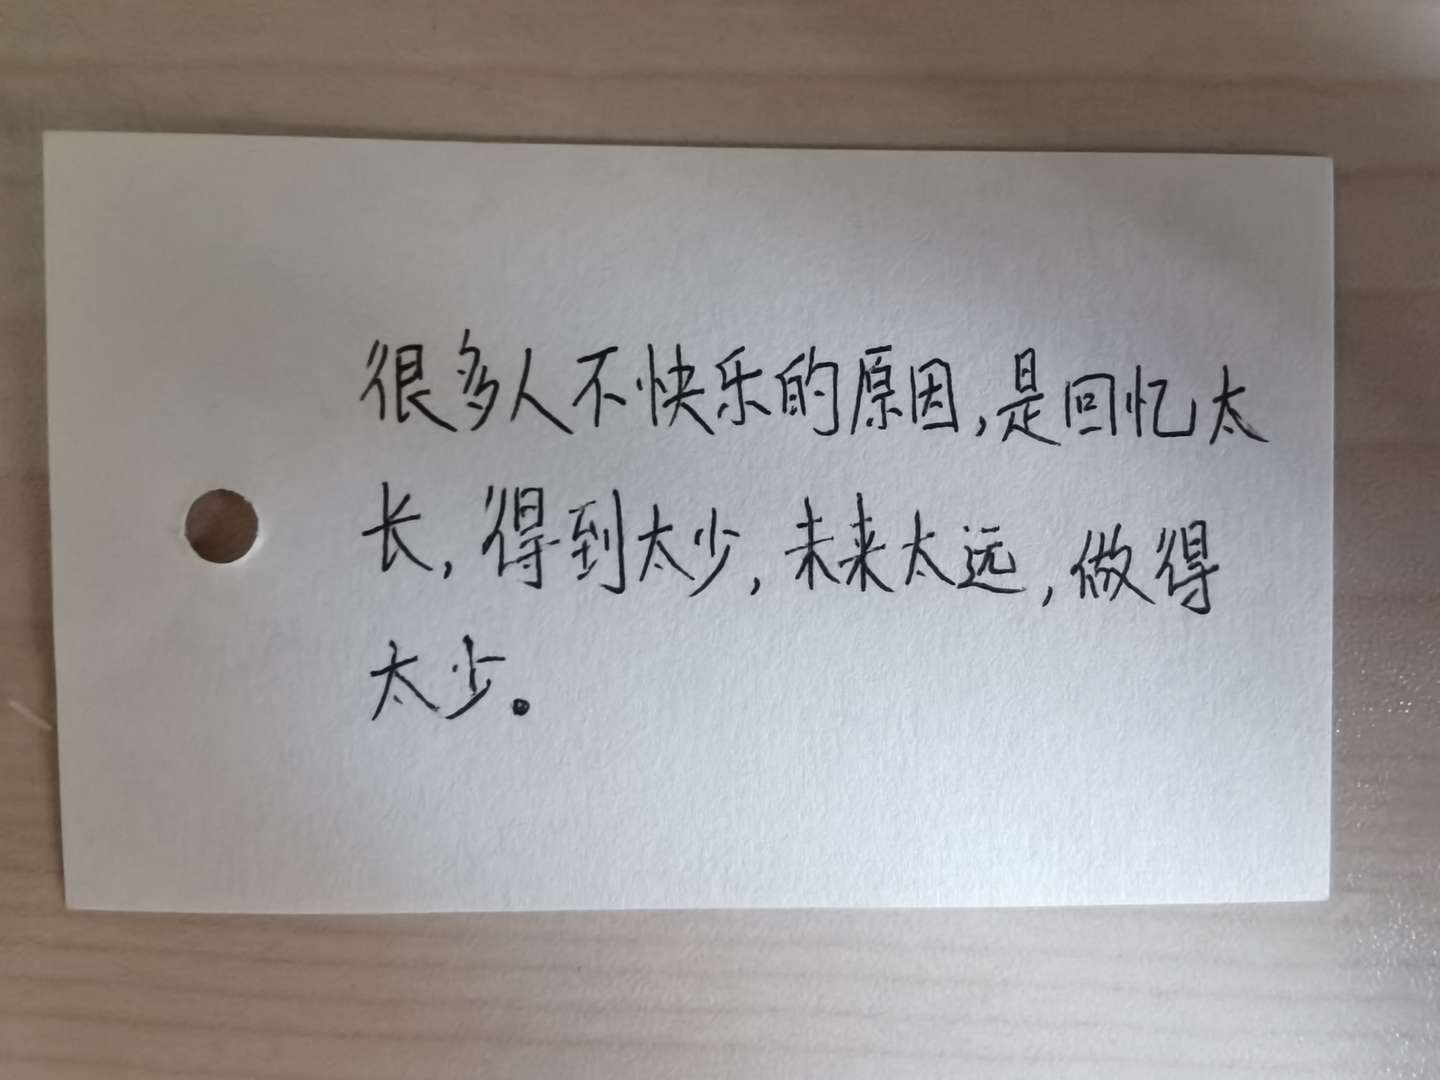 很多人不快乐的原因,是回忆太
长,得到太少,未来太远,做得
太少。